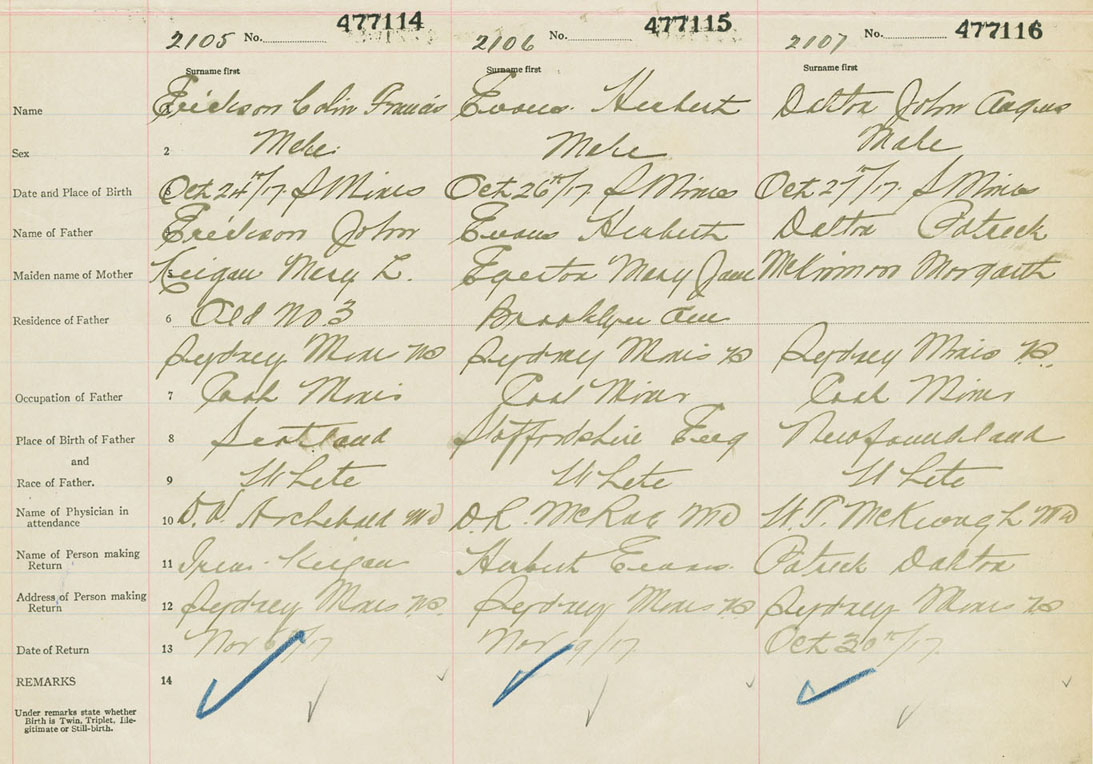 2105 No. 477114 2106 No. 477115 2107 No. 477116
Surname first Surname first Surname first
Name Erickson Colin Francis Evans Herbert Dalton John Angus
Sex 2 Male Male Male
Date and Place of Birth 3 Oct 24th/17 S Mines Oct 26th/17 S Mines Oct 27/17 S Mines
Name of Father Erickson John Evans Herbert Dalton Patrick
Maiden name of Mother 5 Keigan Mary L. Egerton Mary Jane McKinnon
Residence of Father 6 Old No 3 Brooklyn Ave
Sydney Mines NS Sydney Mines NS Sydney Mines NS
Occupation of Father 7 Coal Miner Coal Miner Coal Miner
Place of Birth of Father 8 Scotland Staffordshire Eng Newfoundland
and
Race of Father. 9 White White White
Name of Physician in
attendance 10 Archibald MD D.R. McRae MD W.T. McKeough MD
Name of Person making
Return 11 Keigan Herbert Evans Patrick Dalton
Address of Person making
Return 12 Sydney Mines NS Sydney Mines NS Sydney Mines NS
Date of Return 13 Nov /17 Nov /17 Oct 30th/17
REMARKS 14
Under remarks state whether
Birth is Twin, Triplet, Ille-
gitimate or Still-birth.